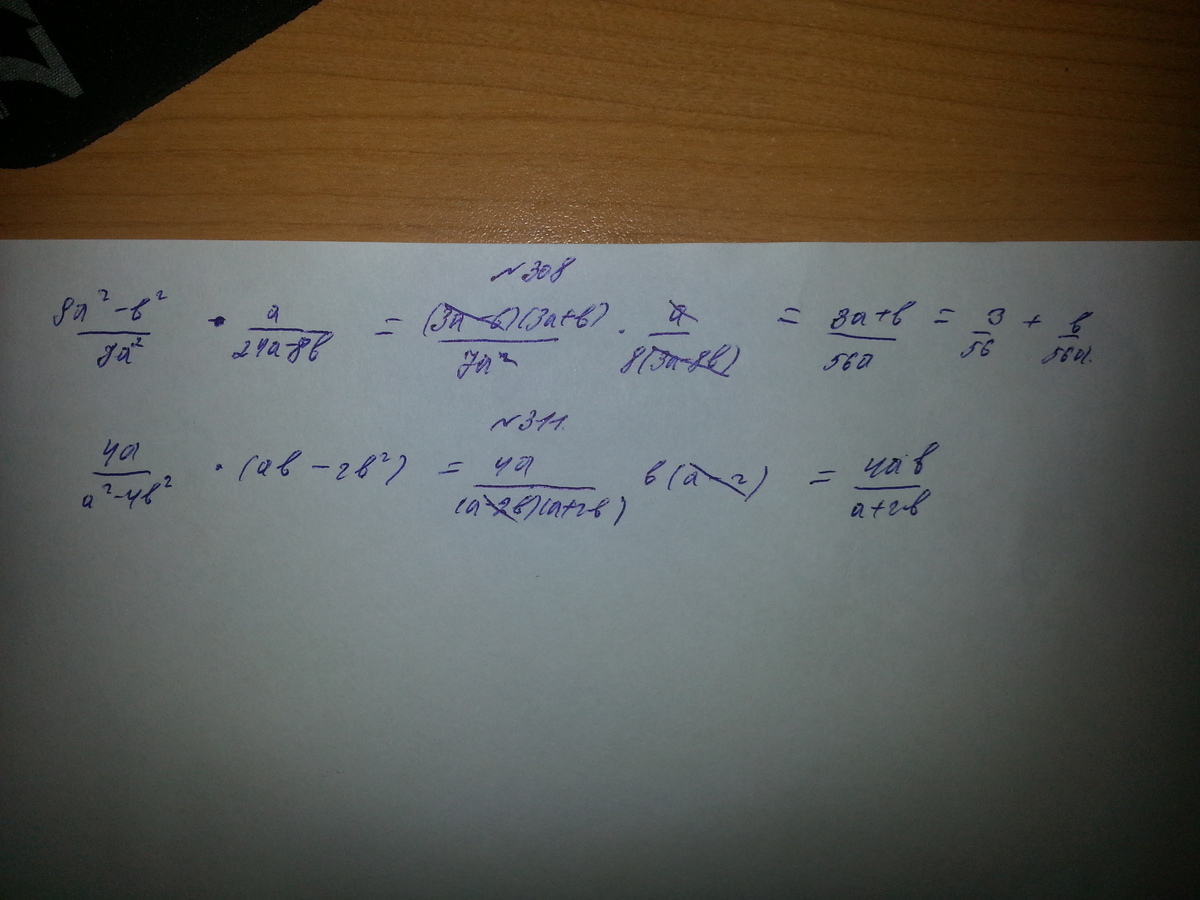 №308
9a² - b² / 7a² · a / 24a-8b = (3a-b)(3a+b) / 7a² · a / 8(3a-8b) = 3a+b / 56a = 3 / 56 + b / 56a
№311
4a / a²-4b² · (ab - 2b²) = 4a / (a-2b)(a+2b) b(a-2) = 4ab / a+2b